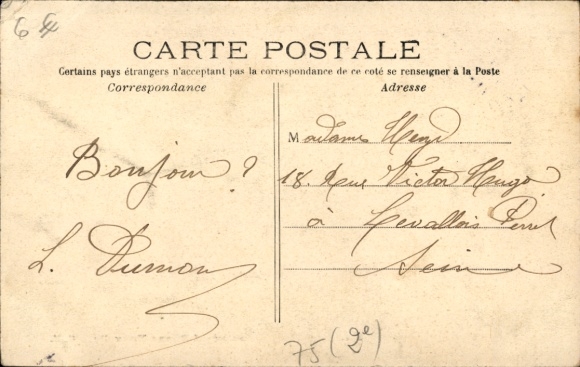 64
CARTE POSTALE
Certains pays étrangers n'acceptant pas la correspondance de ce coté se renseigner à la Poste
Correspondance
Adresse
Bonjour ?
L. Dumon
Madame
18. Rue Victor Hugo
à Levallois Perret
Seine
75 (2e)